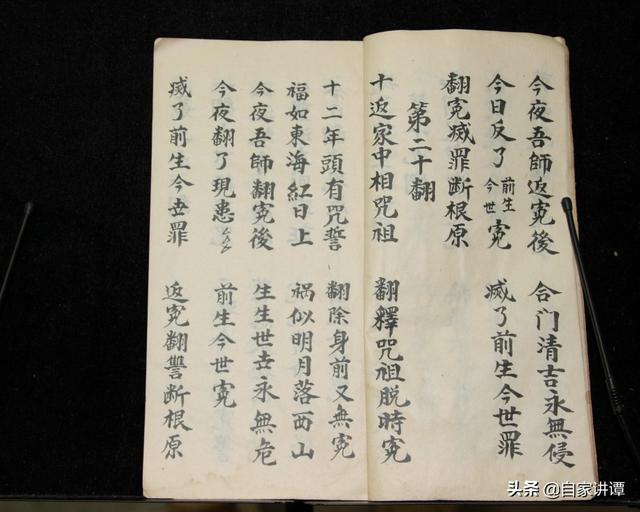 今夜吾師返冤後 合门清吉永無侵
今日反了前生今世冤 滅了前生今世罪
翻冤滅罪断根原
第二十翻
十返家中相咒祖 翻釋咒祖脱時冤
十二年頭有咒誓 翻除身前又無冤
福如東海紅日上 祸似明月落西山
今夜吾師翻冤後 生生世世永無危
今夜翻了現患 前生今世冤
滅了前生今世罪 返冤翻讐断根原
头条 @自家讲谭